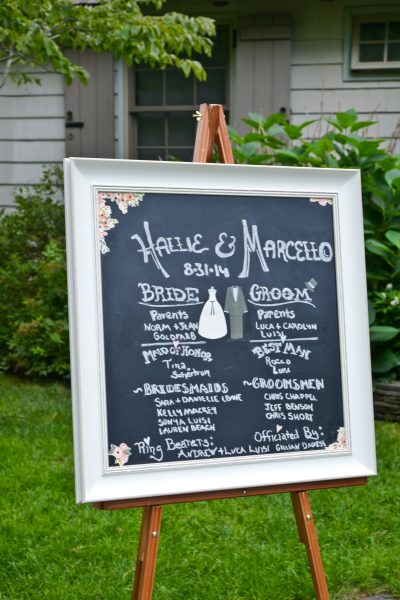 Hallie & Marcello
8-31-14
BRIDE
Parents
NORM + JEAN
GOLDFARB
MAID OF HONOR
Tina
~BRIDESMAIDS
SARA + DANIELLE LEVINE
KELLY MACKEY
SONYA LUISI
LAUREN BEACH
GROOM
Parents
LUCA + CAROLYN
LUISI
BEST MAN
Rocco
Luisi
~GROOMSMEN
CHRIS CHAPPEL
JEFF BENSON
CHRIS SHORT
Ring Bearers:
ANDREW + LUCA LUISI
Officiated By:
GILLIAN